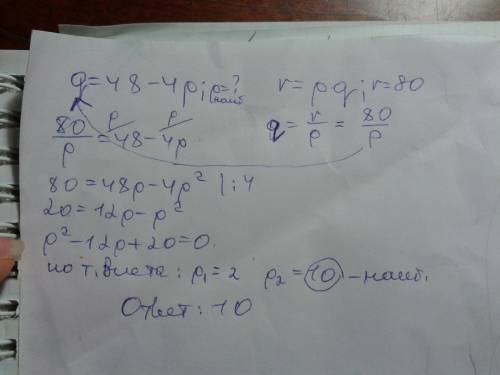 q=48-4p; p=? наиб r=pq; r=80
80/p = 48-4p q= r/p = 80/p
80=48p-4p² |:4
20=12p-p²
p²-12p+20=0.
по т. Виета: p₁=2 p₂=10 - наиб.
Ответ: 10